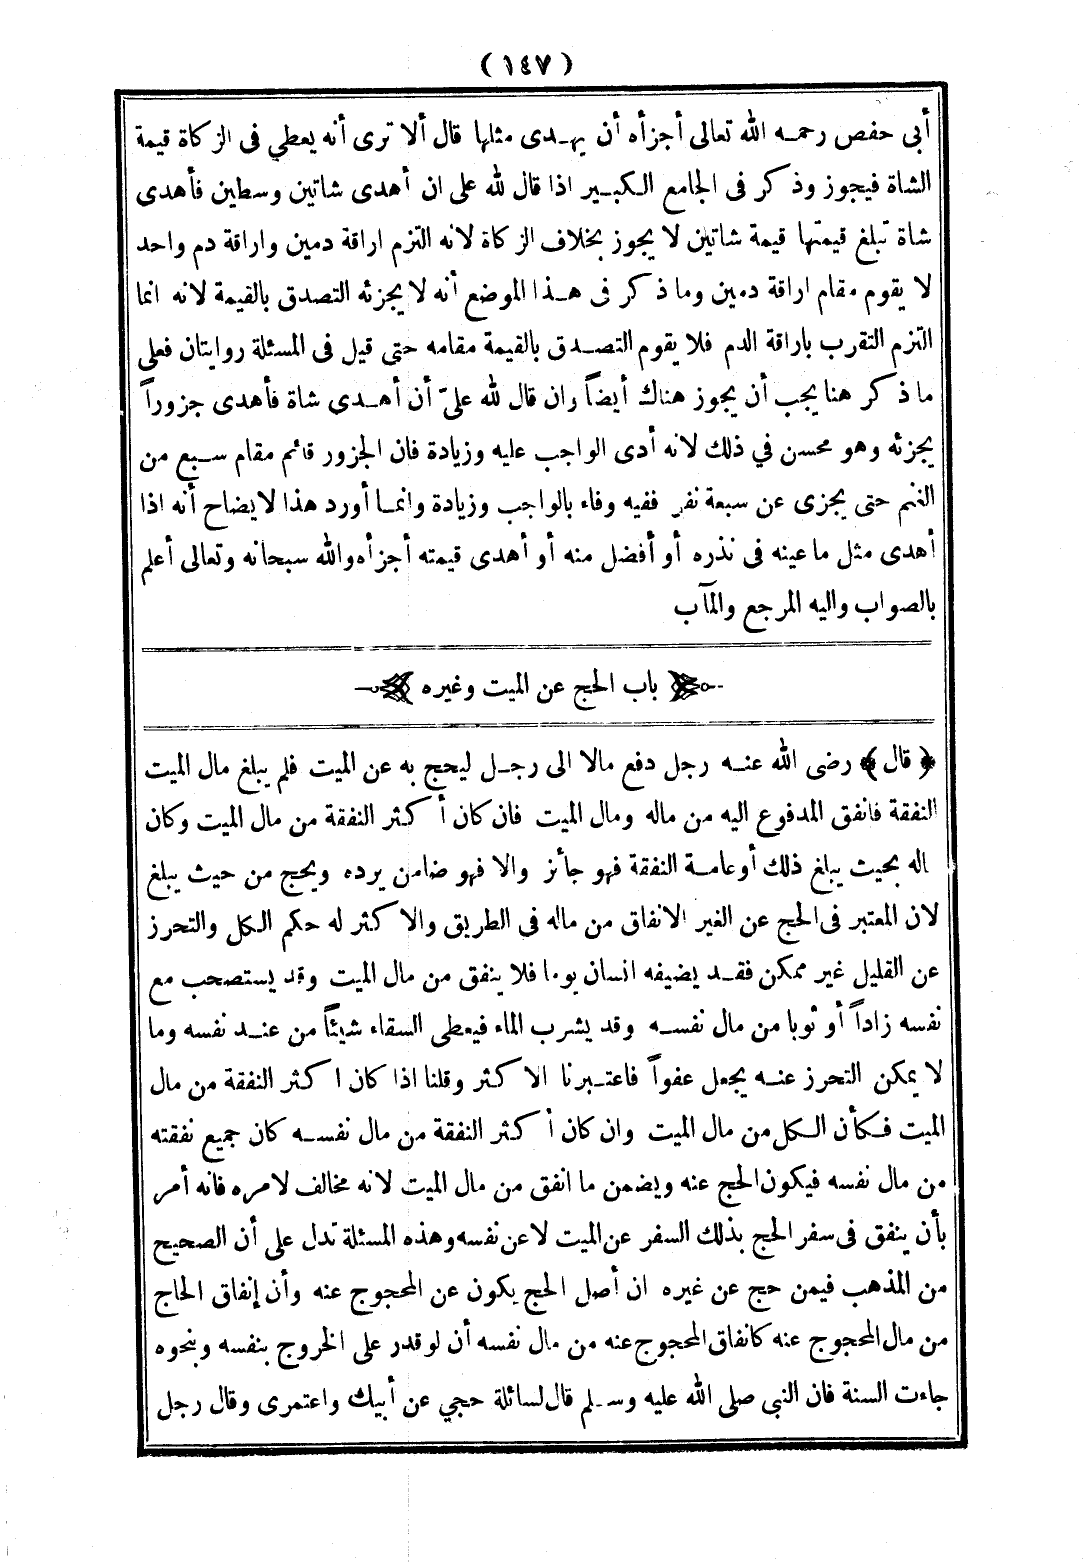 (١٤٧)
أبى حفص رحمه الله تعالى أجزأه أن يهدى مثلها قال ألا ترى أنه يعطي فى الزكاة قيمة
الشاة فيجوز وذكر فى الجامع الكبير اذا قال لله على ان أهدى شاتين وسطين فأهدى
شاة تبلغ قيمتها قيمة شاتين لا يجوز بخلاف الزكاة لانه التزم اراقة دمين واراقة دم واحد
لا يقوم مقام اراقة دمين وما ذكر فى هذا الموضع أنه لا يجزئه التصدق بالقيمة لانه انما
التزم التقرب باراقة الدم فلا يقوم التصدق بالقيمة مقامه حتى قيل فى المسئلة روايتان فعلى
ما ذكر هنا يجب أن يجوز هناك أيضاً وان قال لله علىّ أن أهدى شاة فأهدى جزوراً
يجزئه وهو محسن في ذلك لانه أدى الواجب عليه وزيادة فان الجزور قائم مقام سبع من
الغنم حتى يجزى عن سبعة نفر ففيه وفاء بالواجب وزيادة وانما أورد هذا لايضاح أنه اذا
أهدى مثل ما عينه فى نذره أو أفضل منه أو أهدى قيمته أجزأه والله سبحانه وتعالى أعلم
بالصواب واليه المرجع والمآب
باب الحج عن الميت وغيره
﴿ قال ﴾ رضى الله عنه رجل دفع مالا الى رجل ليحج به عن الميت فلم يبلغ مال الميت
النفقة فانفق المدفوع اليه من ماله ومال الميت فان كان أكثر النفقة من مال الميت وكان
اله بحيث يبلغ ذلك أو عامة النفقة فهو جائز والا فهو ضامن يرده ويحج من حيث يبلغ
لان المعتبر فى الحج عن الغير الانفاق من ماله فى الطريق والاكثر له حكم الكل والتحرز
عن القليل غير ممكن فقد يضيفه انسان يوما فلا ينفق من مال الميت وقد يستصحب مع
نفسه زاداً أو ثوبا من مال نفسه وقد يشرب الماء فيعطى السقاء شيئاً من عند نفسه وما
لا يمكن التحرز عنه يجعل عفواً فاعتبرنا الاكثر وقلنا اذا كان اكثر النفقة من مال
الميت فكأن الكل من مال الميت وان كان أكثر النفقة من مال نفسه كان جميع نفقته
من مال نفسه فيكون الحج عنه ويضمن ما انفق من مال الميت لانه مخالف لامره فانه أمر
بأن ينفق فى سفر الحج بذلك السفر عن الميت لا عن نفسه وهذه المسئلة تدل على أن الصحيح
من المذهب فيمن حج عن غيره ان أصل الحج يكون عن المحجوج عنه وأن إنفاق الحاج
من مال المحجوج عنه كانفاق المحجوج عنه من مال نفسه أن لو قدر على الخروج بنفسه وبنحوه
جاءت السنة فان النبى صلى الله عليه وسلم قال لسائلة حجي عن أبيك واعتمرى وقال رجل